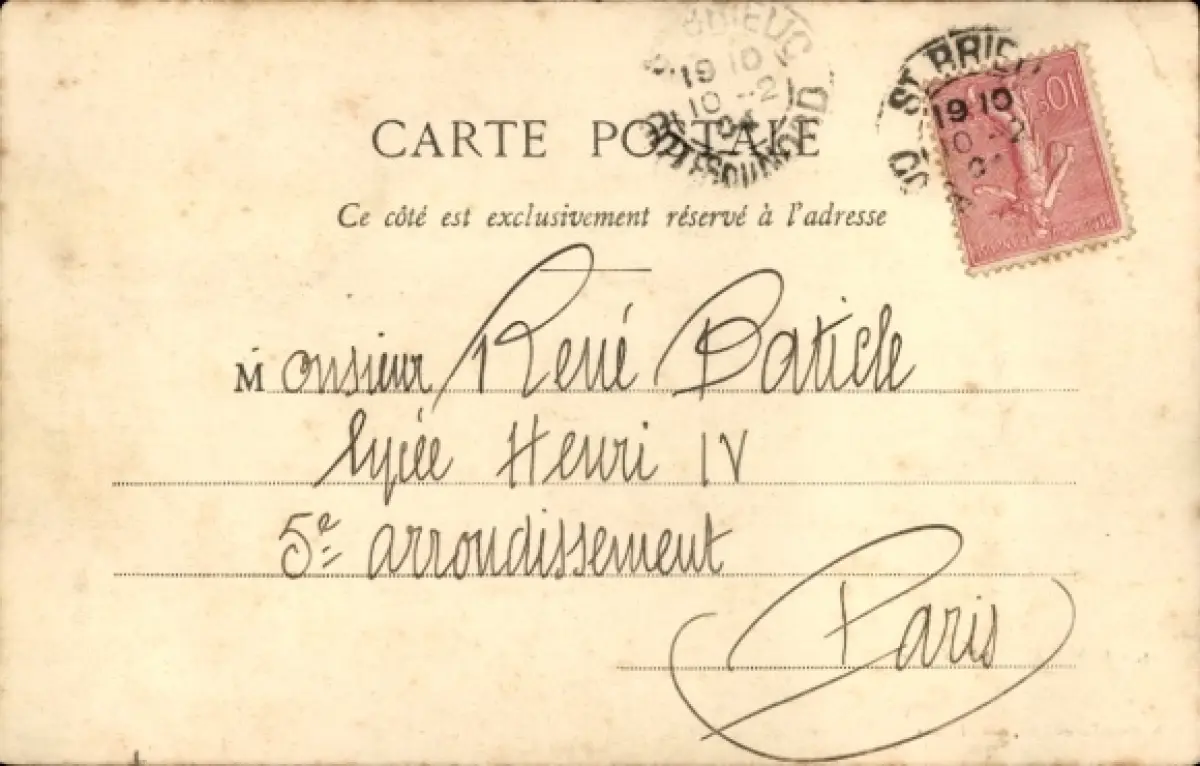 CARTE POSTALE
Ce côté est exclusivement réservé à l'adresse
Monsieur René Baticle
lycée Henri IV
5e arrondissement
Paris
ST BRIEUC
19 10
10 -2
04
COTES DU NORD
ST BRIE
19 10
10 -2
0
10c